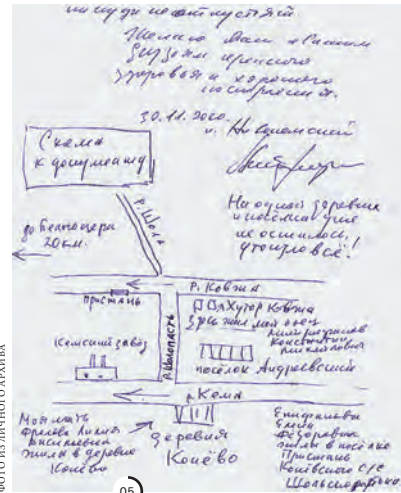 Желаю Вам и Вашим
друзьям крепкого
здоровья и хорошего
настроения.
30.11.2020.
Схема
к документу
р. Шола
На одной деревни
и посёлка уже
не осталось,
утонуло всё!
до Белозера
20 км.
р. Ковжа
пристань
Хутор Ковжа
здесь жил мой отец
Константин
Николаевич
Кемский завод
р. Шолопасть
посёлок Андреевский
р. Кема
Моя мать
Фролова Лидия
Васильевна
жили в деревне
Конёво
деревня
Конёво
Епифановы
Елена
Фёдоровна
жили в посёлке
Пристань
Конёвского с/с
ФОТО ИЗ ЛИЧНОГО АРХИВА
05